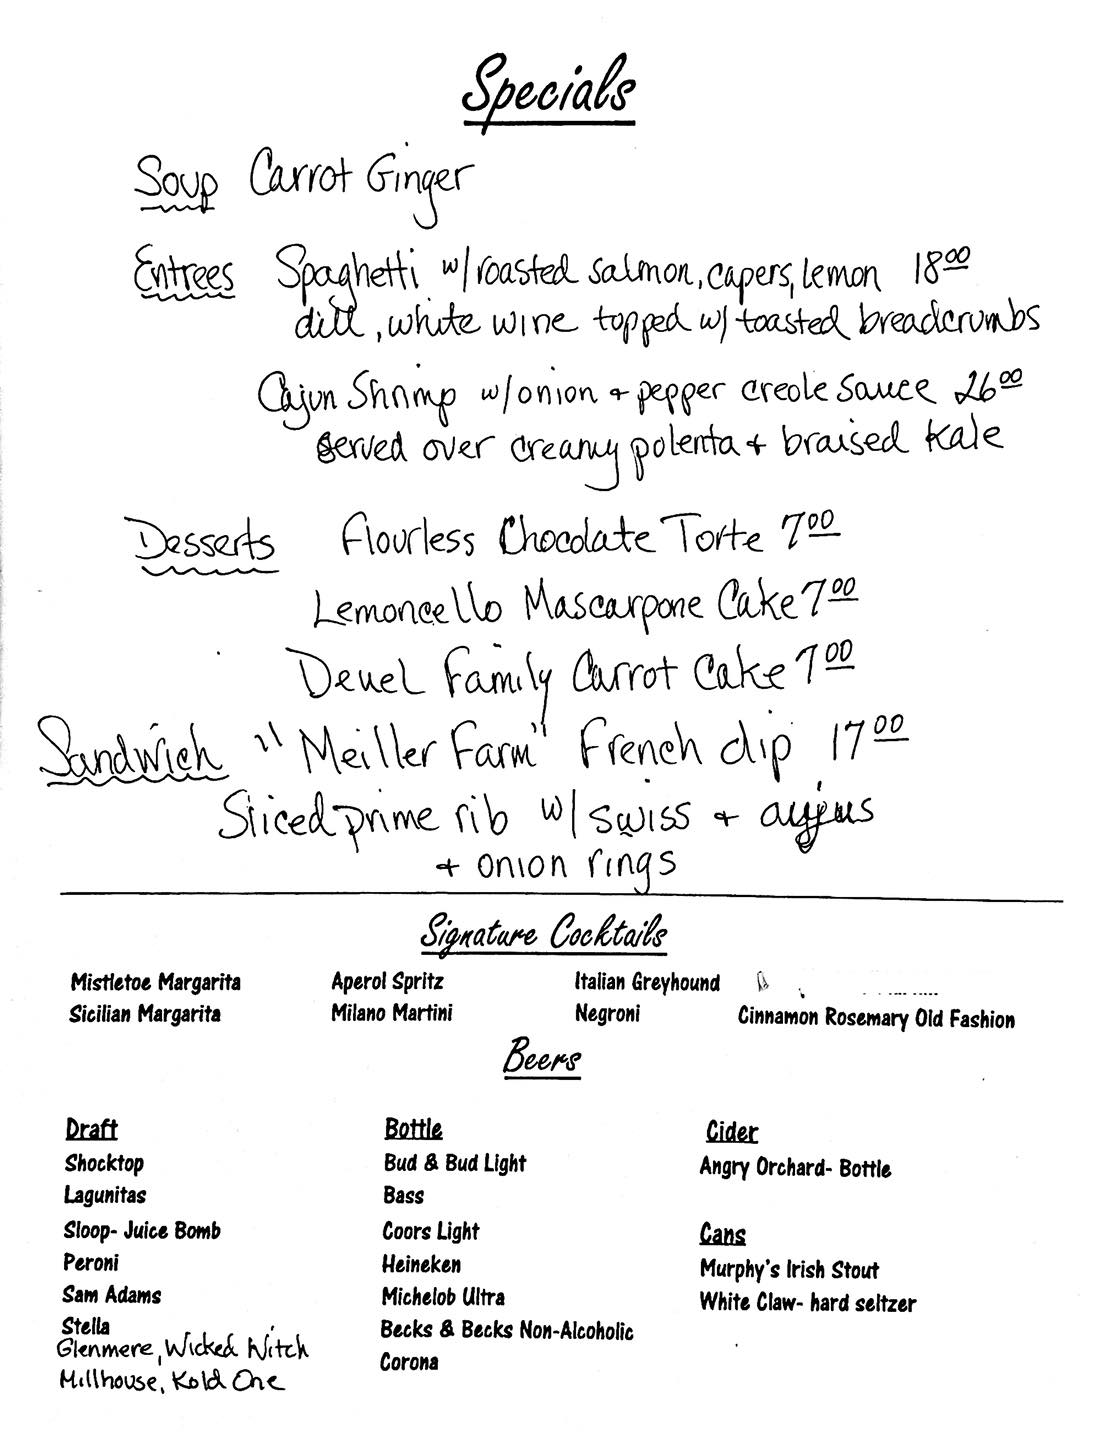 Specials
Soup Carrot Ginger
Entrees Spaghetti w/ roasted salmon, capers, lemon 18.00
dill, white wine topped w/ toasted breadcrumbs
Cajun Shrimp w/ onion + pepper creole sauce 26.00
served over creamy polenta + braised Kale
Desserts Flourless Chocolate Torte 7.00
Lemoncello Mascarpone Cake 7.00
Deuel Family Carrot Cake 7.00
Sandwich "Meiller Farm" French dip 17.00
Sliced prime rib w/ swiss + aujus
+ onion rings
Signature Cocktails
Mistletoe Margarita Aperol Spritz Italian Greyhound
Sicilian Margarita Milano Martini Negroni Cinnamon Rosemary Old Fashion
Beers
Draft Bottle Cider
Shocktop Bud & Bud Light Angry Orchard- Bottle
Lagunitas Bass
Sloop- Juice Bomb Coors Light Cans
Peroni Heineken Murphy's Irish Stout
Sam Adams Michelob Ultra White Claw- hard seltzer
Stella Becks & Becks Non-Alcoholic
Glenmere, Wicked Witch Corona
Millhouse, Kold One